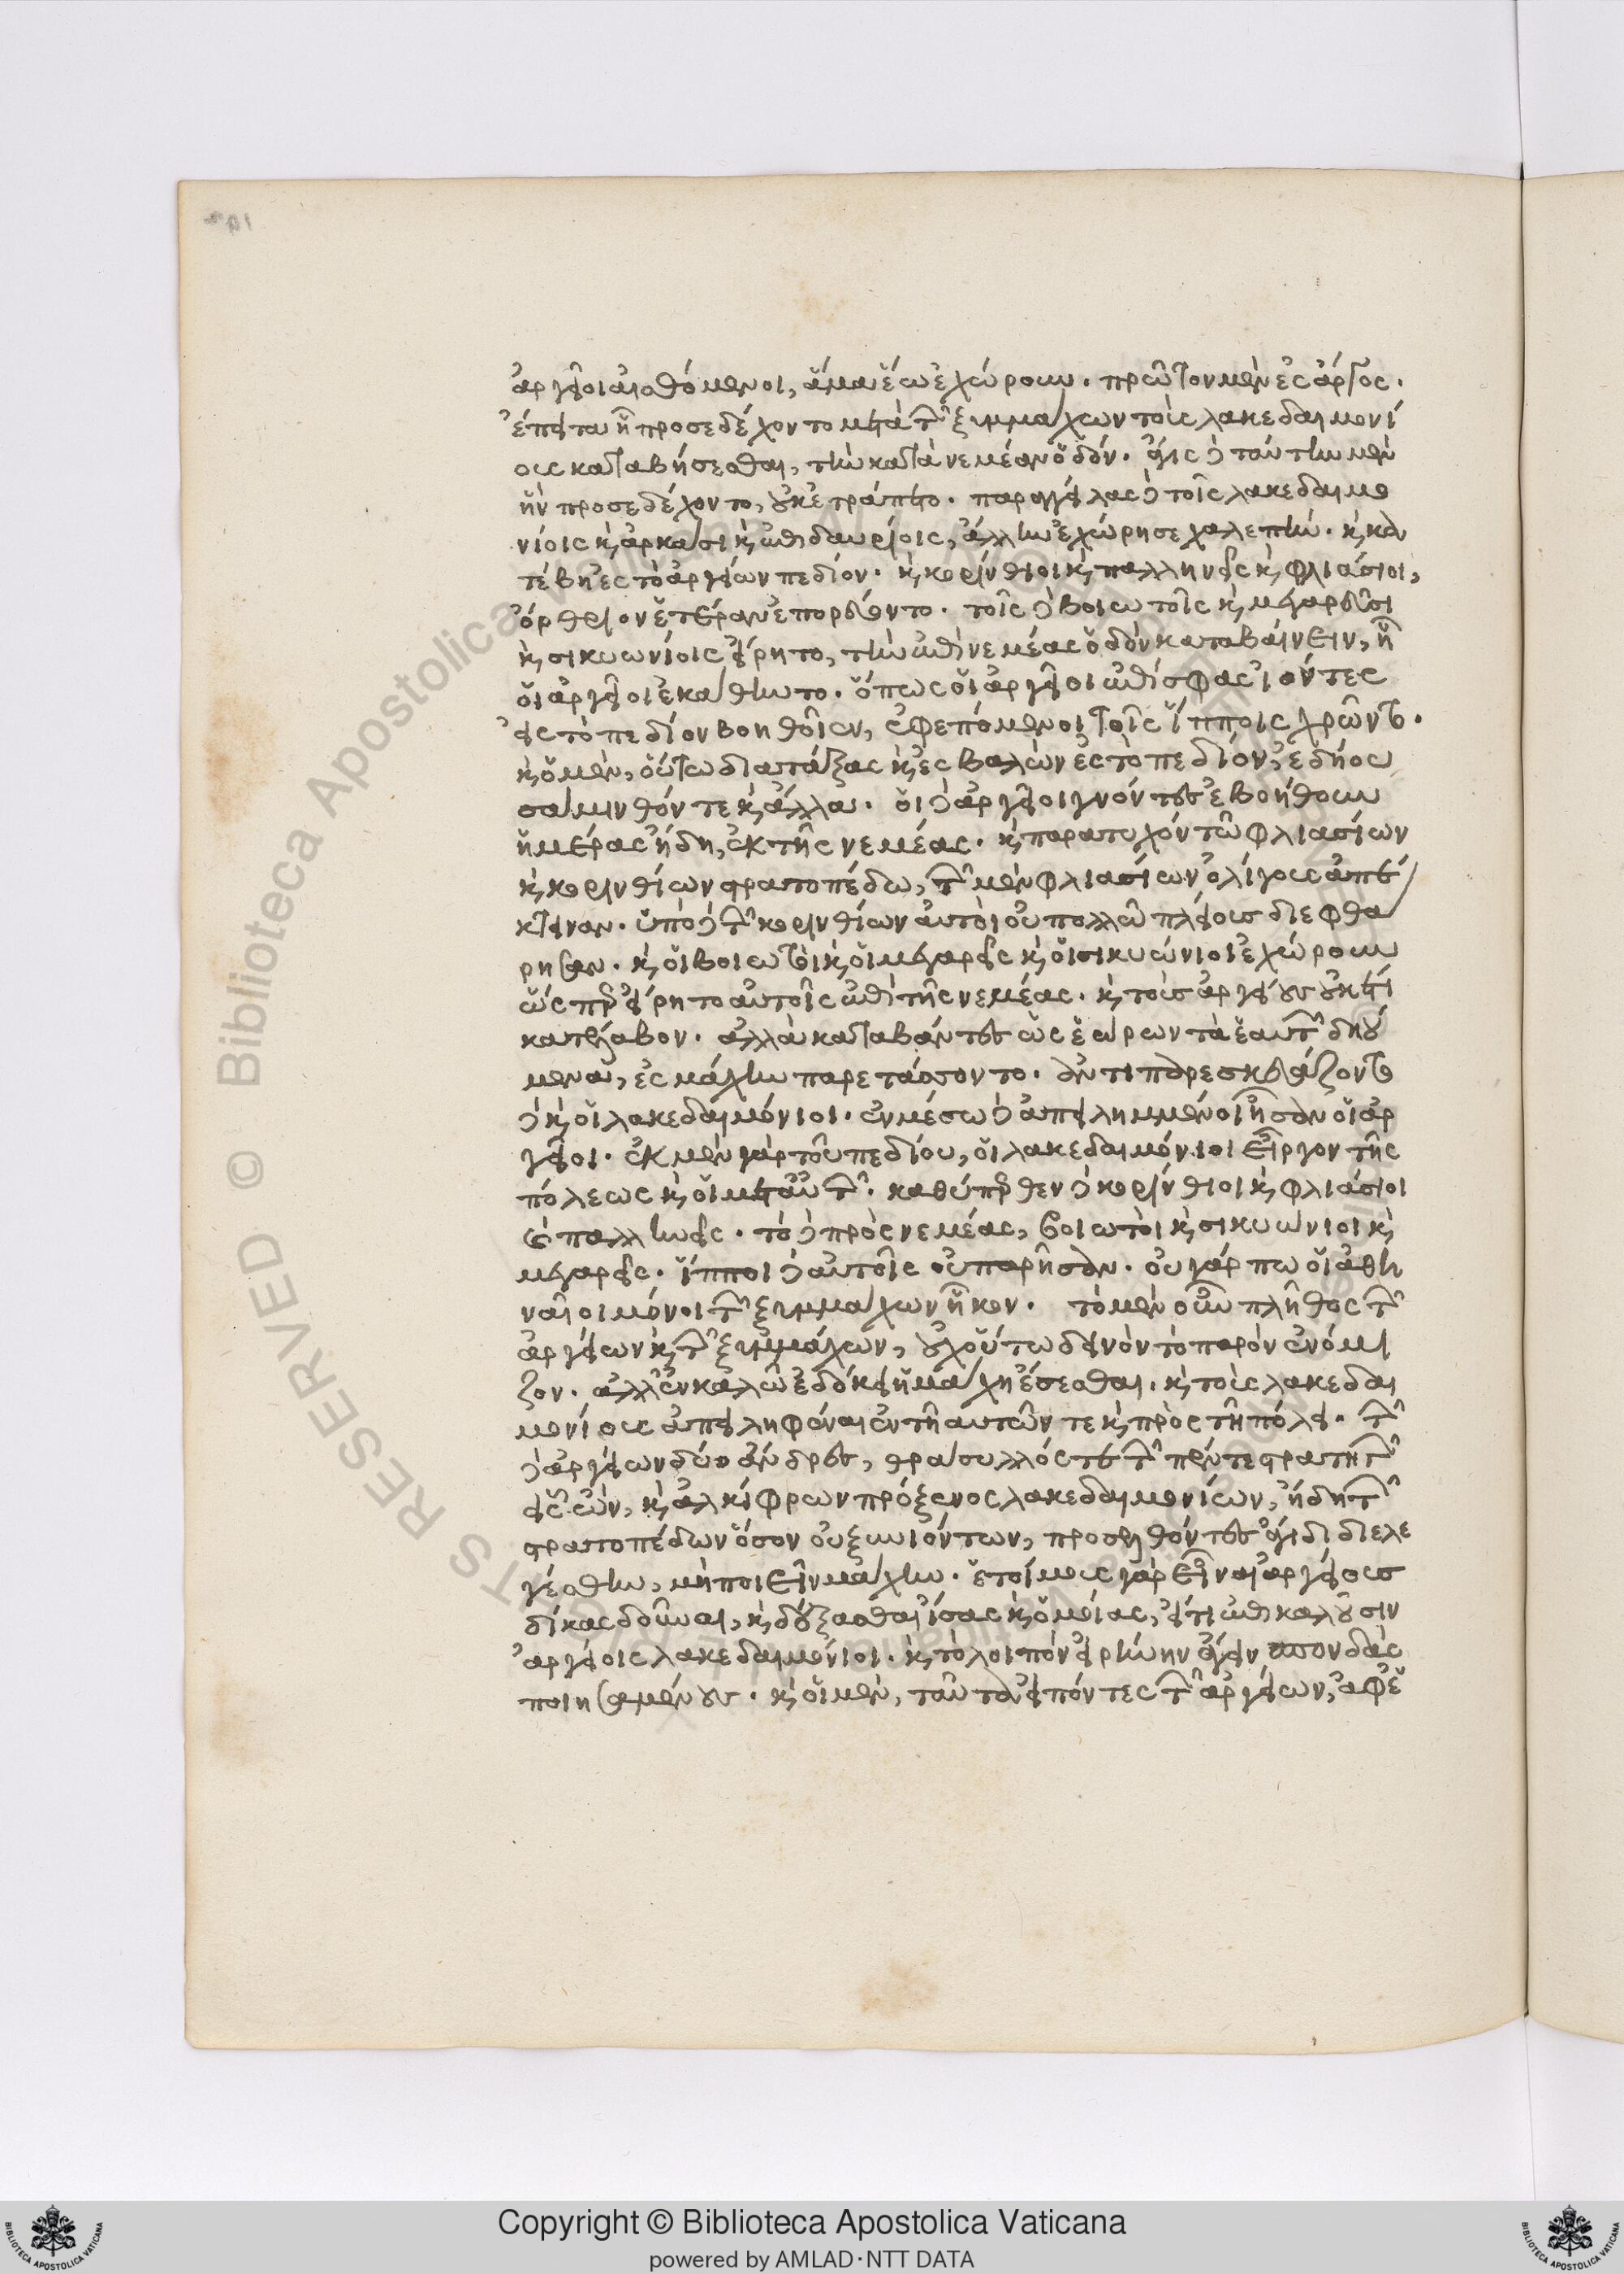 ἀργεῖοι αἰσθόμενοι, ἅμα ἕω ἐχώρουν. πρῶτον μὲν ἐς ἄργος.
ἔπειτα ᾗ προσεδέχοντο μετὰ τῶν ξυμμάχων τοὺς λακεδαιμονί
ους καταβήσεσθαι, τὴν κατὰ νεμέαν ὁδόν. ἆγις δὲ ταύτην μὲν
ἣν προσεδέχοντο, οὐκ ἐτράπετο. παραγγείλας δὲ τοῖς λακεδαιμο
νίοις καὶ ἀρκάσι καὶ ἐπιδαυρίοις, ἄλλην ἐχώρησε χαλεπήν. καὶ κα
τέβη ἐς τὸ ἀργείων πεδίον. καὶ κορίνθιοι καὶ παλληνεῖς καὶ φλιάσιοι,
ὄρθριον ἑτέραν ἐπορεύοντο. τοῖς δὲ βοιωτοῖς καὶ μεγαρεῦσι
καὶ σικυωνίοις εἴρητο, τὴν ἐπὶ νεμέας ὁδὸν καταβαίνειν, ᾗ
οἱ ἀργεῖοι ἐκάθηντο. ὅπως οἱ ἀργεῖοι ἐπὶ σφᾶς ἰόντες
εἰς τὸ πεδίον βοηθοῖεν, ἐφεπόμενοι τοῖς ἵπποις χρῶντο.
καὶ ὁ μὲν, οὕτω διατάξας καὶ ἐσβαλὼν ἐς τὸ πεδίον, ἐδῄου
σάμινθόν τε καὶ ἄλλα. οἱ δὲ ἀργεῖοι γνόντες ἐβοήθουν
ἡμέρας ἤδη, ἐκ τῆς νεμέας. καὶ παρατυχόντες τῷ φλιασίων
καὶ κορινθίων στρατοπέδῳ, τῶν μὲν φλιασίων ὀλίγους ἀπέ
κτειναν. ὑπὸ δὲ τῶν κορινθίων αὐτοὶ οὐ πολλῷ πλείους διεφθά
ρησαν. καὶ οἱ βοιωτοὶ καὶ οἱ μεγαρεῖς καὶ οἱ σικυώνιοι ἐχώρουν
ὥσπερ εἴρητο αὐτοῖς ἐπὶ τῆς νεμέας. καὶ τοὺς ἀργείους οὐκέτι
κατέλαβον. ἀλλὰ καταβάντες ὡς ἑώρων τὰ ἑαυτῶν δῃού
μενα, ἐς μάχην παρετάσσοντο. ἀντιπαρεσκευάζοντο
δὲ καὶ οἱ λακεδαιμόνιοι. ἐν μέσῳ δὲ ἀπειλημμένοι ἦσαν οἱ ἀρ
γεῖοι. ἐκ μὲν γὰρ τοῦ πεδίου, οἱ λακεδαιμόνιοι εἶργον τῆς
πόλεως καὶ οἱ μετ' αὐτῶν. καθύπερθεν δὲ κορίνθιοι καὶ φλιάσιοι
καὶ παλληνεῖς. τὸ δὲ πρὸς νεμέας, βοιωτοὶ καὶ σικυώνιοι καὶ
μεγαρεῖς. ἵπποι δὲ αὐτοῖς οὐ παρῆσαν. οὐ γάρ πω οἱ ἀθη
ναῖοι μόνοι τῶν ξυμμάχων ἧκον. τὸ μὲν οὖν πλῆθος τῶν
ἀργείων καὶ τῶν ξυμμάχων, οὐχ οὕτω δεινὸν τὸ παρὸν ἐνόμι
ζον. ἀλλ' ἐν καλῷ ἐδόκει ἡ μάχη ἔσεσθαι. καὶ τοὺς λακεδαι
μονίους ἀπειληφέναι ἐν τῇ αὑτῶν τε καὶ πρὸς τῇ πόλει. τῶν
δὲ ἀργείων δύο ἄνδρες, θράσυλλός τε τῶν πέντε στρατηγῶν
εἷς ὢν, καὶ ἀλκίφρων πρόξενος λακεδαιμονίων, ἤδη τῶν
στρατοπέδων ὅσον οὐ ξυνιόντων, προσελθόντες ἄγιδι διελε
γέσθην, μὴ ποιεῖν μάχην. ἑτοίμους γὰρ εἶναι ἀργείους
δίκας δοῦναι, καὶ δέξασθαι ἴσας καὶ ὁμοίας, εἴ τι ἐπικαλοῦσιν
ἀργείοις λακεδαιμόνιοι. καὶ τὸ λοιπὸν εἰρήνην ἄγειν σπονδὰς
ποιησαμένους. καὶ οἱ μὲν, ταῦτα εἰπόντες τῶν ἀργείων, ἀφ' ἑ